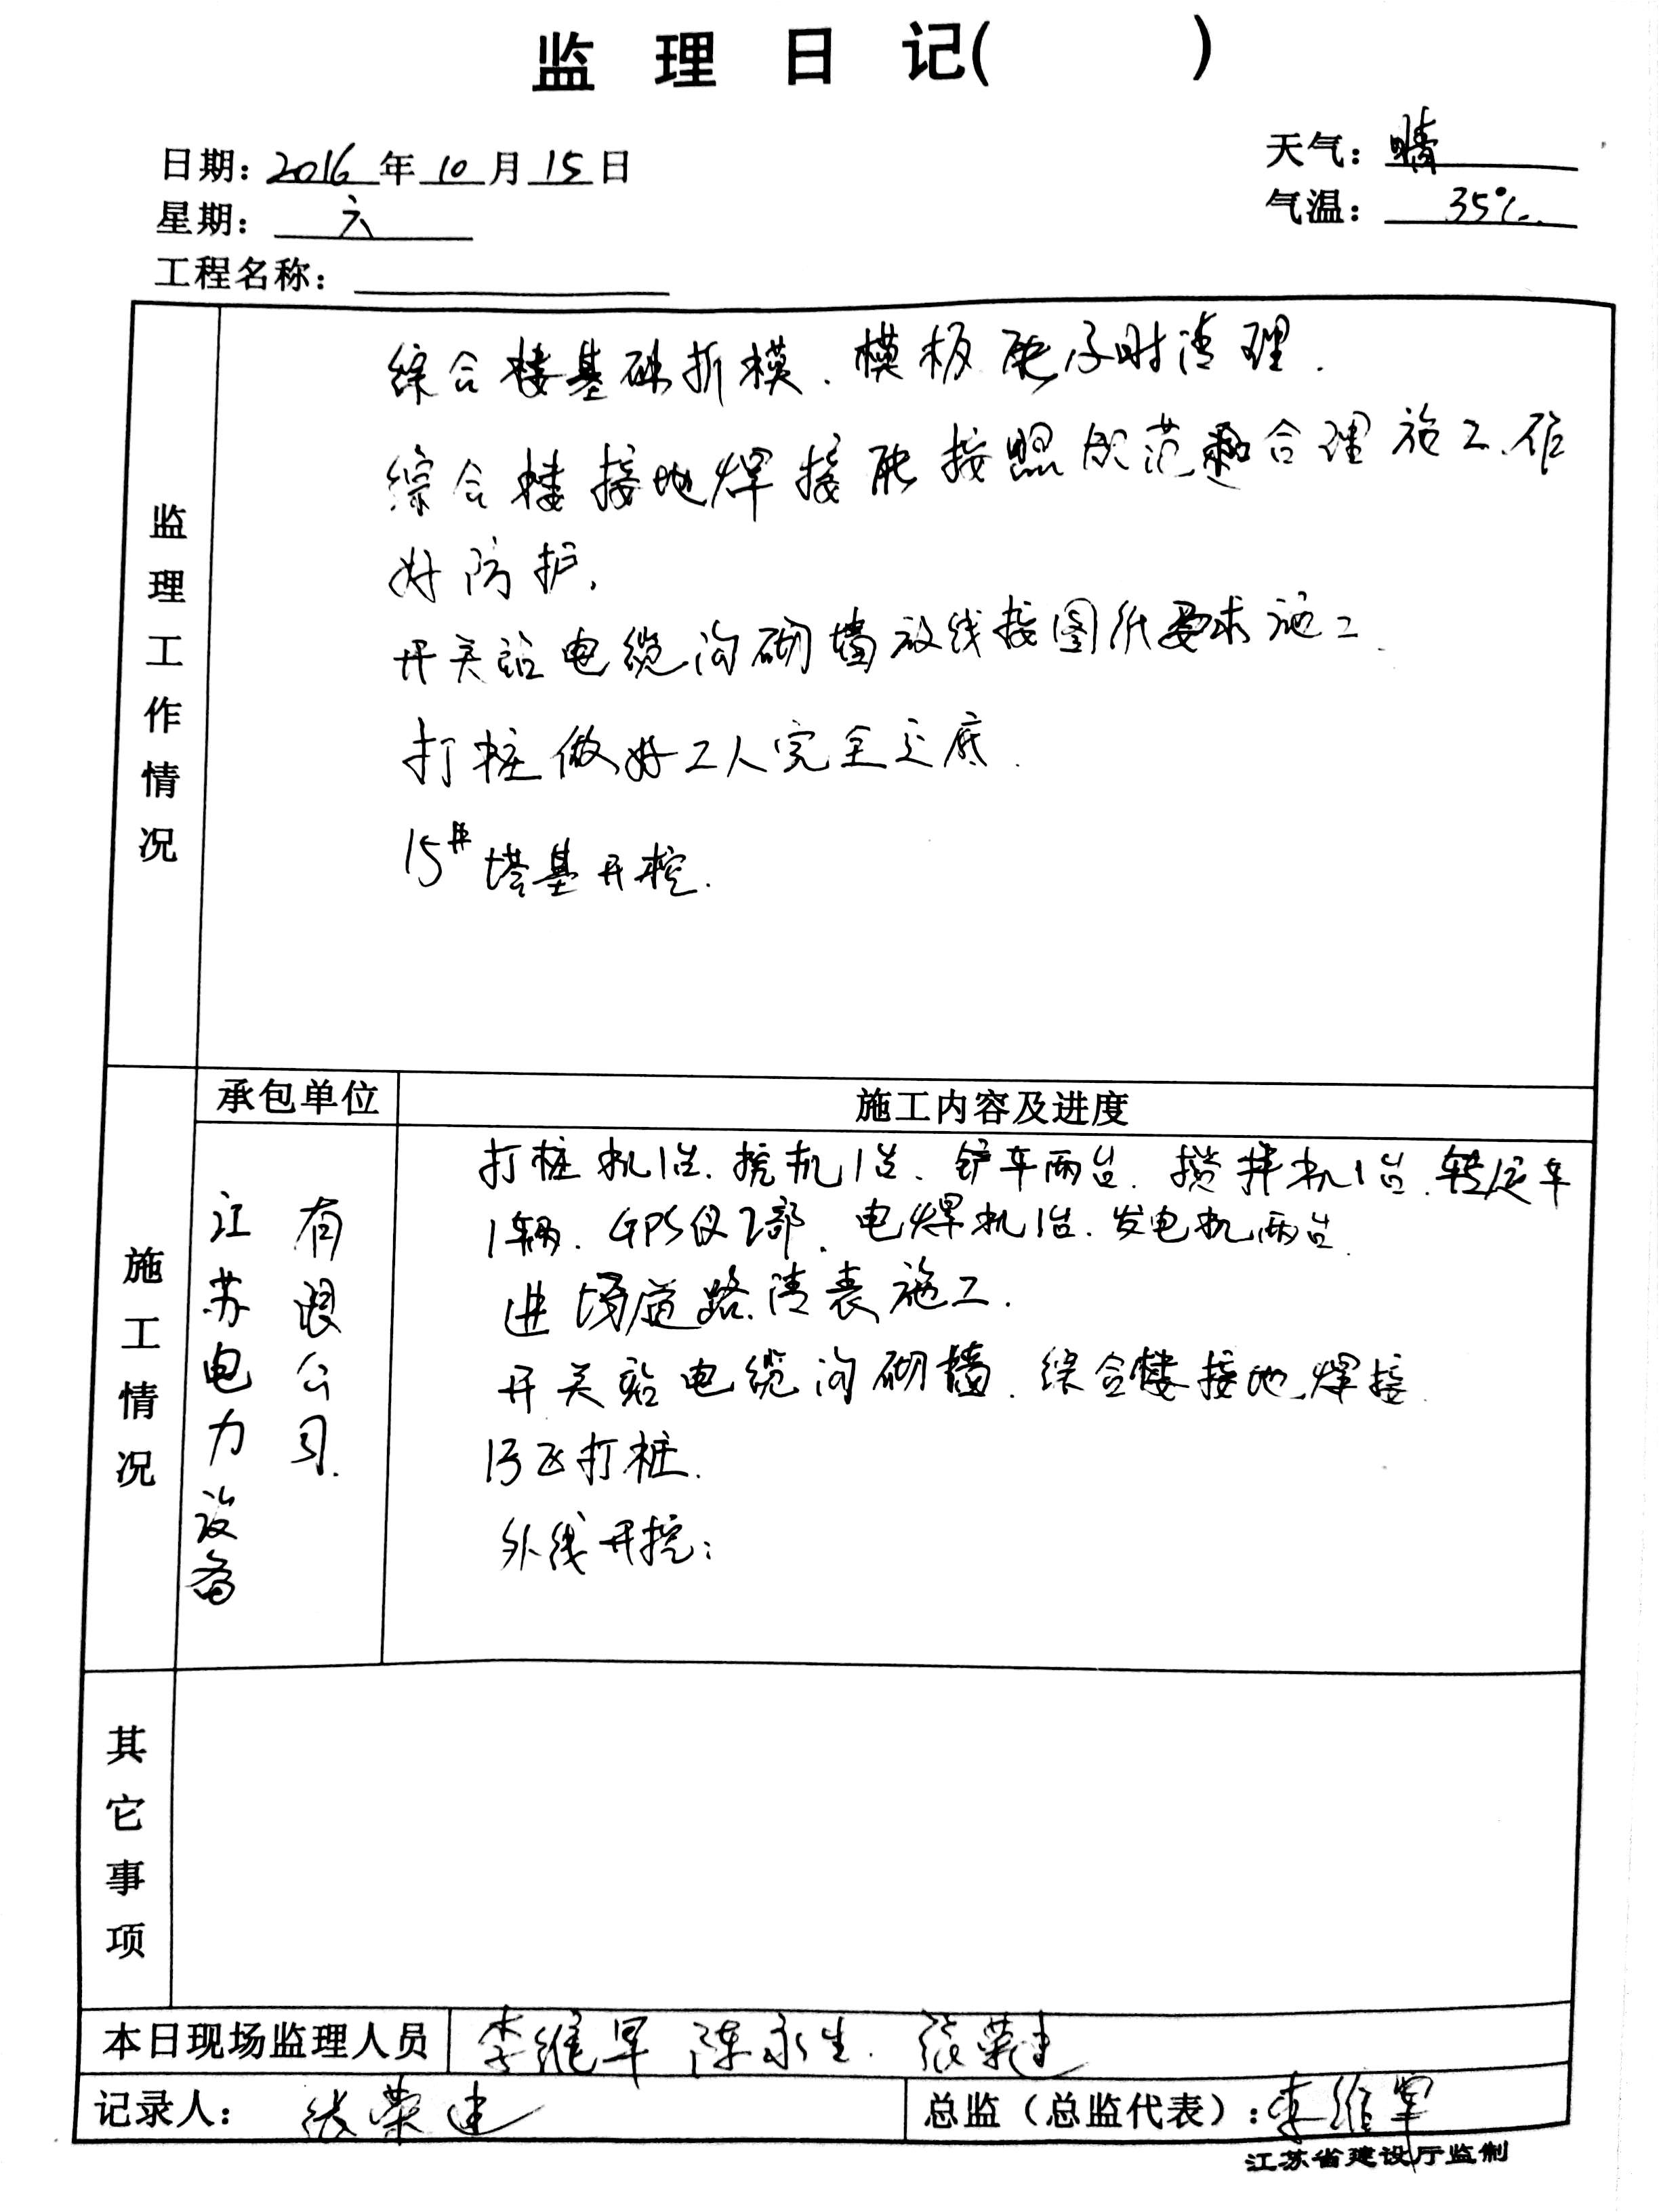 监 理 日 记(　　　)
日期：2016年10月15日
天气：晴
星期：六
气温：35℃
工程名称：
监理工作情况
综合楼基础拆模、模板 及时清理.
综合楼接地焊接 按照规范 合理施工.作
好防护.
开关站电缆沟砌墙放线按图纸要求施工.
打桩做好工人完全交底.
15# 塔基开挖.
承包单位
施工内容及进度
施工情况
江苏电力设备
有限公司.
打桩机1台.挖机1台.铲车两台.搅拌机1台.转运车
1辆.GPS仪2部.电焊机1台.发电机两台.
进场道路.清表施工.
开关站电缆沟砌墙.综合楼接地焊接.
13区打桩.
外线开挖；
其它事项
本日现场监理人员 李维军 陈永生. 张荣建
记录人： 张荣建
总监（总监代表）：李维军
江苏省建设厅监制